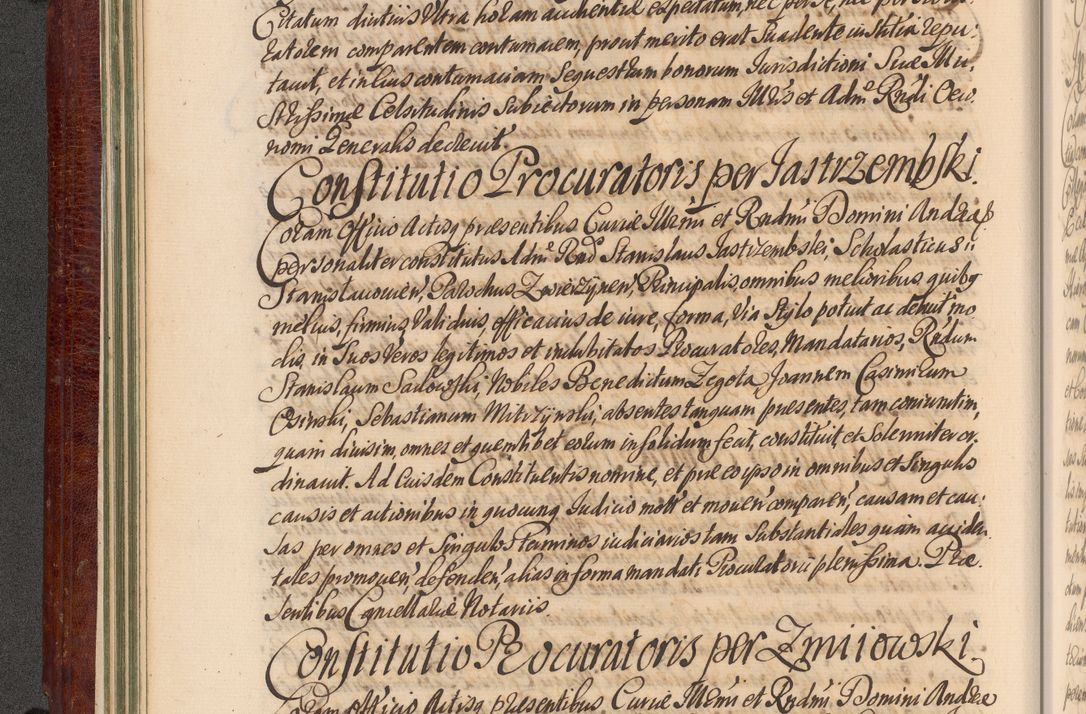 Citatum diutius Ultra horam audientiae expectatum, nec per se, nec per
ratorem comparentem contumacem, prout merito erat Suadente iustitia repu-
tavit, et in eius contumaciam Sequestrum bonorum Iurisdictioni Suae Illu-
strissimae Celsitudinis Subiectorum in personam Illris et Adm. Rndi Oeco-
nomi Generalis decrevit.
Constitutio Procuratoris per Jastrzembski.
Coram Officio Actisq praesentibus Curiae Illmi et Rndmi Domini Andreae
personaliter constitutus Adm. Rnd Stanislaus Jastrzembski, Scholasticus
Stanislaviowien, Parochus Zwierzynen, Principalis, omnibus melioribus, quibq
melius, firmius, Validius, efficacius de iure, forma, Via Stylo potuit ac debuit mo-
dis, in Suos Veros legitimos et indubitatos Procuratores, Mandatarios, Rndum
Stanislaum Sadowski, Nobiles Benedictum Zegota, Joannem Casimirum
Osinski, Sebastianum Mitrzynski, absentes tanquam praesentes, tam coniunctim,
quam divisim, omnes et quemlibet eorum in solidum fecit, constituit, et Solemniter or-
dinavit. Ad Eiusdem Constituentis nomine, et pro eo ipso in omnibus et Singulis
causis et actionibus in quocunq Iudicio motis et moven, comparen, causam et cau-
sas per omnes et Singulos Terminos iudiciarios tam Substantiales quam acciden-
tales promoven, defenden, alias in forma mandati Procuratorii plenissima. Prae-
sentibus Cancellariae Notariis
Constitutio Procuratoris per Zmiiowski.
Coram Officio Actisq praesentibus Curiae Illmi et Rndmi Domini Andreae